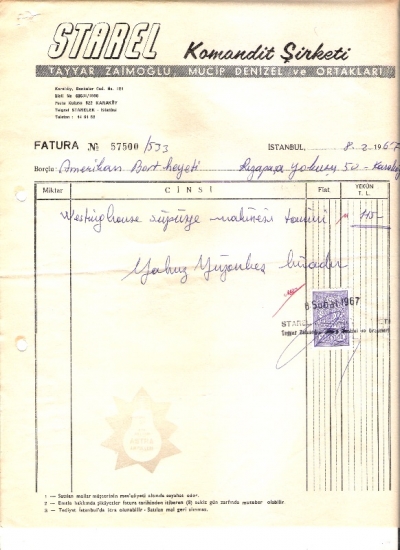 STAREL Komandit Şirketi
TAYYAR ZAİMOĞLU, MUCİP DENİZEL ve ORTAKLARI
Karaköy, Bankalar Cad. No. 101
Posta Kutusu 822 KARAKÖY
Telgraf STARELEK - Istanbul
Telefon :
FATURA № 57500/533
İSTANBUL, 8.2.1967
Borçlu: Amerikan Bort heyeti
Yokuşu 50 - Karaköy
Miktar CİNSİ Fiat YEKÜN T. L.
Westinghouse süpürge makinesi tamiri 115-
Yalnız Yüzonbeş liradır
8 Şubat 1967
1 — Satılan mallar müşterinin mes'uliyeti altında seyahat eder.
2 — Emtia hakkında şikâyetler fatura tarihinden itibaren (8) sekiz gün zarfında muteber olabilir.
3 — Tediyat İstanbul'da icra olunabilir - Satılan mal geri alınmaz.